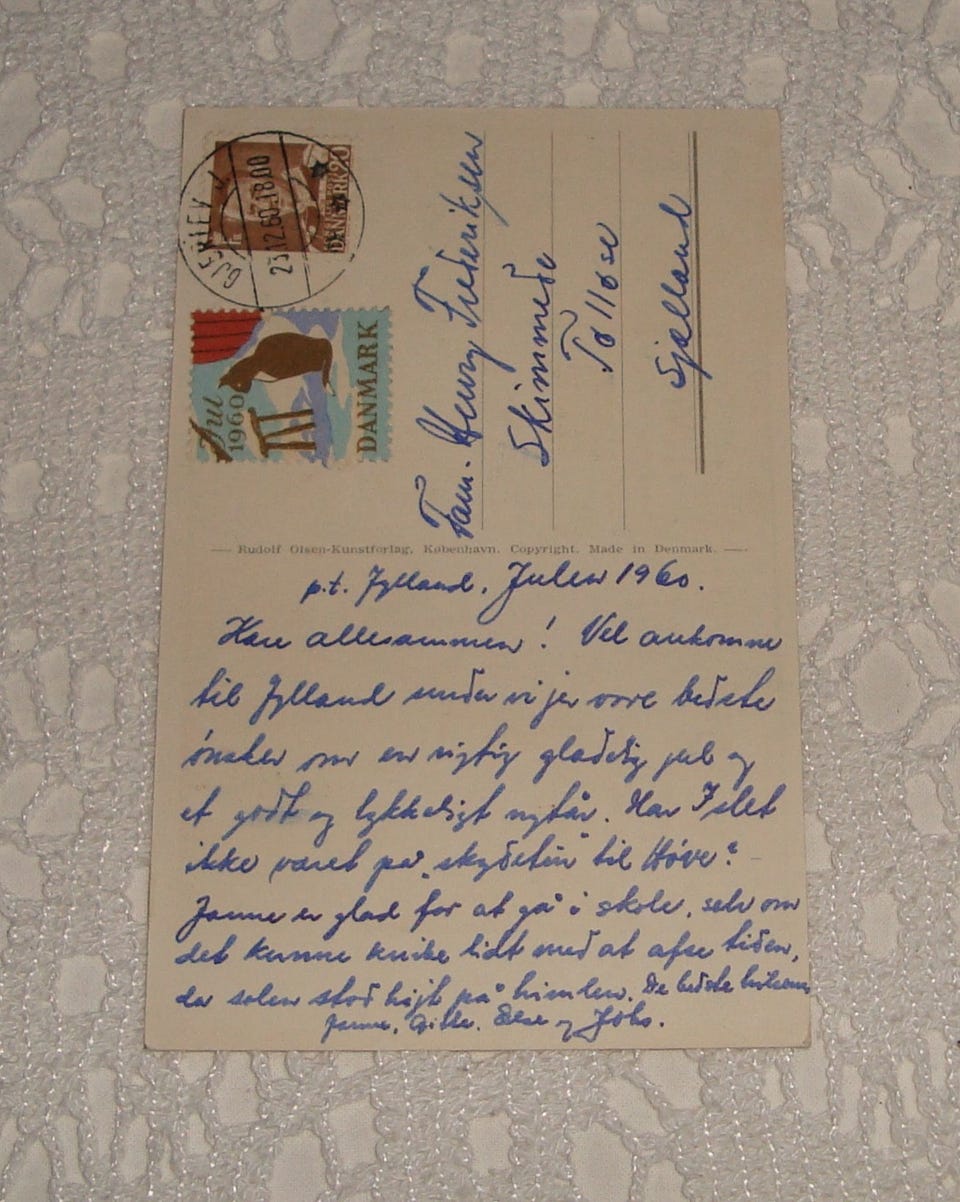 DANMARK 20
GJERLEV J.
23.12.60.18.00
Jul
1960
DANMARK
Fam. Henry Frederiksen
Skimmede
Tølløse
Sjælland
Rudolf Olsen-Kunstforlag, København. Copyright. Made in Denmark.
p.t. Jylland, Julen 1960.
Kære allesammen! Vel ankomne
til Jylland sender vi jer vore bedste
ønsker om en rigtig glædelig jul og
et godt og lykkeligt nytår. Har I slet
ikke været på "skydetur" til Høve?
Janne er glad for at gå i skole, selv om
det kunne knibe lidt med at afse tiden,
da solen stod højt på himlen. De bedste hilsner
Janne, Gitte, Else og Johs.